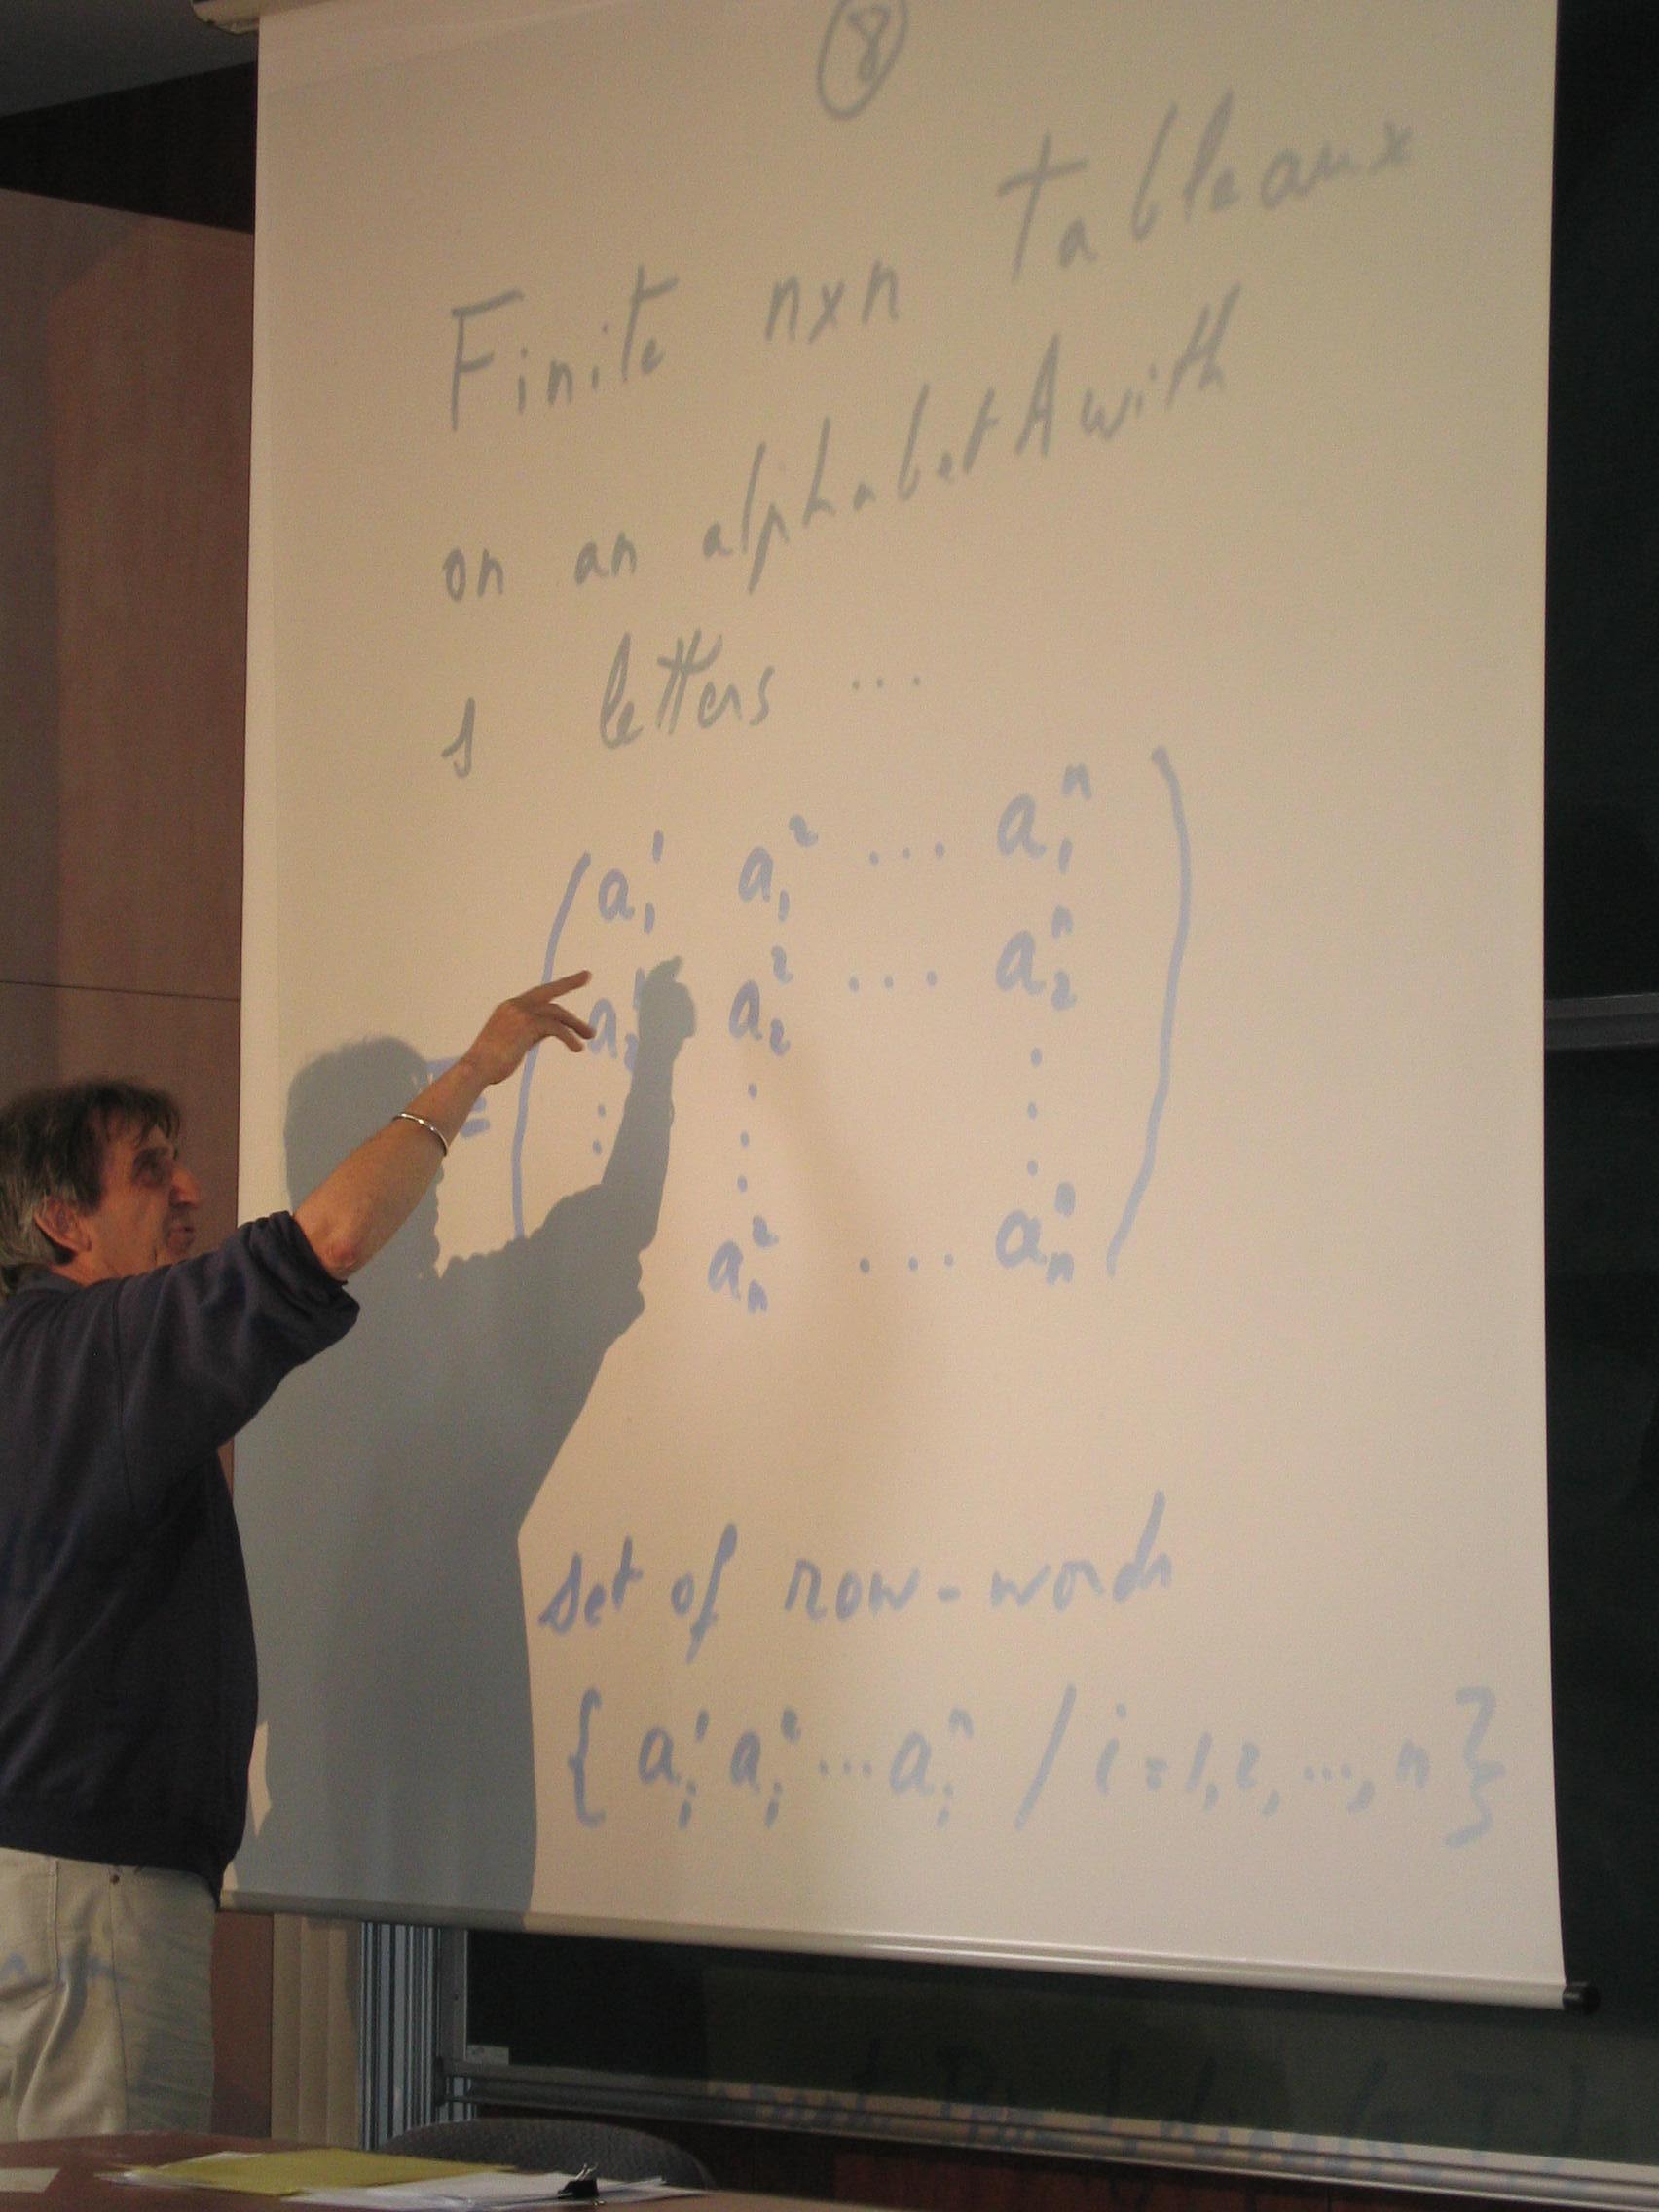 ⑧
Finite n×n Tableaux
on an alphabet A with
s letters ...
= ( a₁¹ a₁² ... a₁ⁿ )
a₂¹ a₂² ... a₂ⁿ
⋮ ⋮ ⋮
aₙ² ... aₙⁿ
set of row-words
{ aᵢ¹ aᵢ² ... aᵢⁿ / i = 1, 2, ..., n }